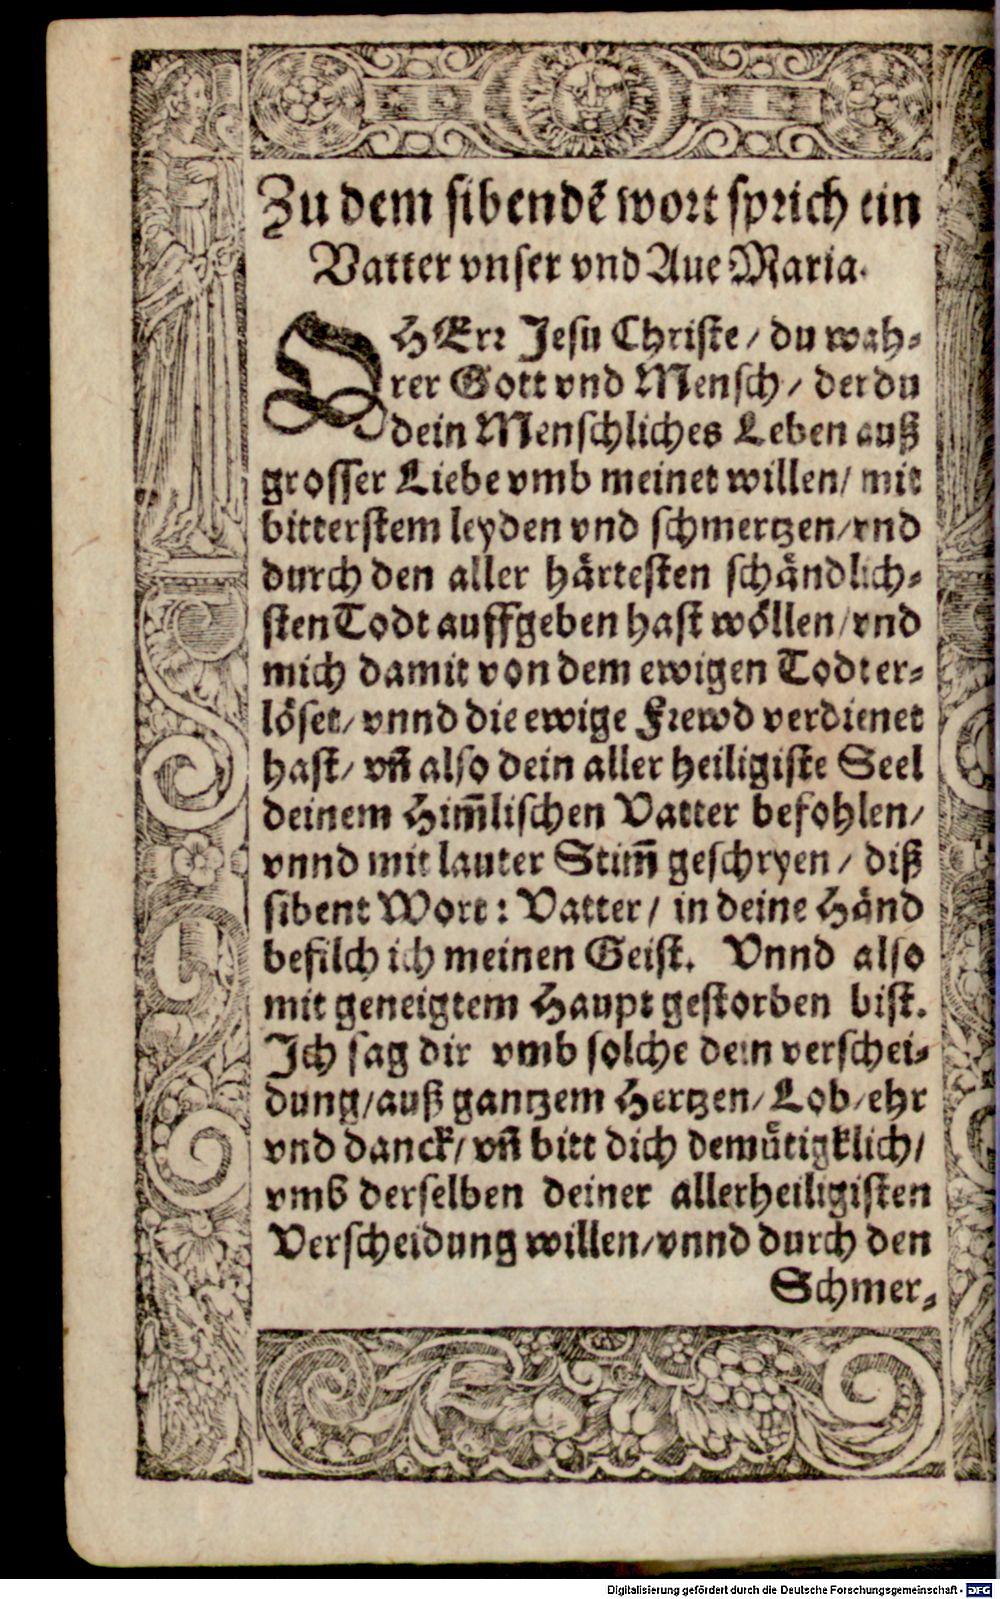 Zu dem sibendẽ wort sprich ein
Vatter vnser vnd Aue Maria.
O HErr Jesu Christe / du wah-
rer Gott vnd Mensch / der du
dein Menschliches Leben auß
grosser Liebe vmb meinet willen / mit
bitterstem leyden vnd schmertzen / vnd
durch den aller härtesten schändlich-
sten Todt auffgeben hast wöllen / vnd
mich damit von dem ewigen Todt er-
löset / vnnd die ewige Frewd verdienet
hast / vñ also dein aller heiligiste Seel
deinem Him̃lischen Vatter befohlen /
vnnd mit lauter Stim̃ geschryen / diß
sibent Wort: Vatter / in deine Händ
befilch ich meinen Geist. Vnnd also
mit geneigtem Haupt gestorben bist.
Ich sag dir vmb solche dein verschei-
dung / auß gantzem Hertzen / Lob / ehr
vnd danck / vñ bitt dich demütigklich /
vmb derselben deiner allerheiligisten
Verscheidung willen / vnnd durch den
Schmer-
Digitalisierung gefördert durch die Deutsche Forschungsgemeinschaft - DFG